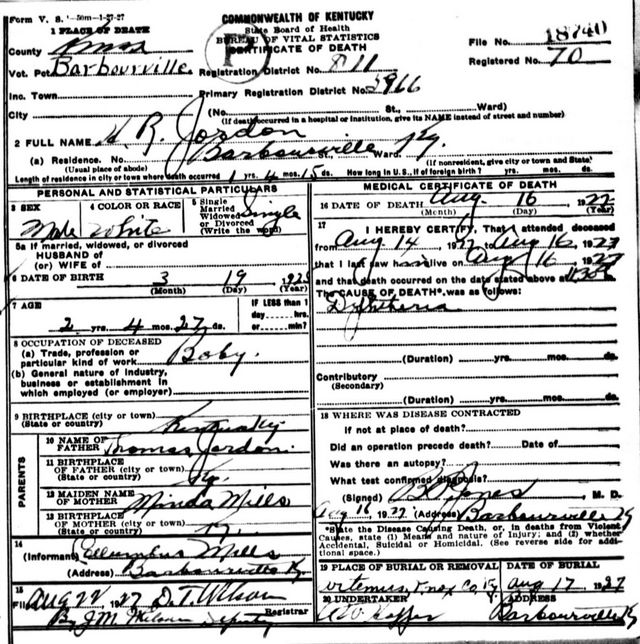 Form V. S. 1-50m-1-27-27
COMMONWEALTH OF KENTUCKY
State Board of Health
BUREAU OF VITAL STATISTICS
CERTIFICATE OF DEATH
1 PLACE OF DEATH
County Knox
File No. 18740
Vot. Pct. Barbourville
Registration District No. 811
Registered No. 70
Inc. Town
Primary Registration District No. 5966
City (No. St., Ward)
(If death occurred in a hospital or institution, give its NAME instead of street and number)
2 FULL NAME R. Jordon
(a) Residence. No. Barbourville Ky. St., Ward.
(Usual place of abode) (If nonresident, give city or town and State)
Length of residence in city or town where death occurred 1 yrs. 4 mos. 15 ds. How long in U. S., if of foreign birth? yrs. mos. ds.
PERSONAL AND STATISTICAL PARTICULARS
3 SEX
Male
4 COLOR OR RACE
White
5 Single
Married
Widowed
or Divorced
(Write the word)
Single
5a If married, widowed, or divorced
HUSBAND of
(or) WIFE of
6 DATE OF BIRTH 3 19 1925
(Month) (Day) (Year)
7 AGE
2 yrs. 4 mos. 27 ds.
IF LESS than 1
day hrs.
or min?
8 OCCUPATION OF DECEASED
(a) Trade, profession or
particular kind of work Baby.
(b) General nature of industry,
business or establishment in
which employed (or employer)
9 BIRTHPLACE (city or town)
(State or country) Kentucky
PARENTS
10 NAME OF
FATHER Thomas Jordon.
11 BIRTHPLACE
OF FATHER (city or town)
(State or country) Ky.
12 MAIDEN NAME
OF MOTHER Minda Mills
13 BIRTHPLACE
OF MOTHER (city or town)
(State or country) Ky.
14
(Informant) Collumbus Mills
(Address) Barbourville Ky.
15
Filed Aug 22 1927 D. T. Wilson
Registrar
By J.M. Wilson Deputy
MEDICAL CERTIFICATE OF DEATH
16 DATE OF DEATH Aug. 16 1927
(Month) (Day) (Year)
17
I HEREBY CERTIFY, That I attended deceased
from Aug 14 1927 to Aug 16 1927
that I last saw him alive on Aug 16 1927
and that death occurred on the date stated above at
The CAUSE OF DEATH* was as follows:
Diphtheria
(Duration) yrs. mos. ds.
Contributory
(Secondary)
(Duration) yrs. mos. ds.
18 WHERE WAS DISEASE CONTRACTED
If not at place of death?
Did an operation precede death? Date of
Was there an autopsy?
What test confirmed diagnosis?
(Signed) Jones M. D.
Aug 16 1927 (Address) Barbourville Ky
*State the Disease Causing Death, or, in deaths from Violent
Causes, state (1) Means and nature of Injury; and (2) whether
Accidental, Suicidal or Homicidal. (See reverse side for addi-
tional space.)
19 PLACE OF BURIAL OR REMOVAL DATE OF BURIAL
Artemus, Knox Co, Ky Aug 17 1927
20 UNDERTAKER ADDRESS
Barbourville Ky